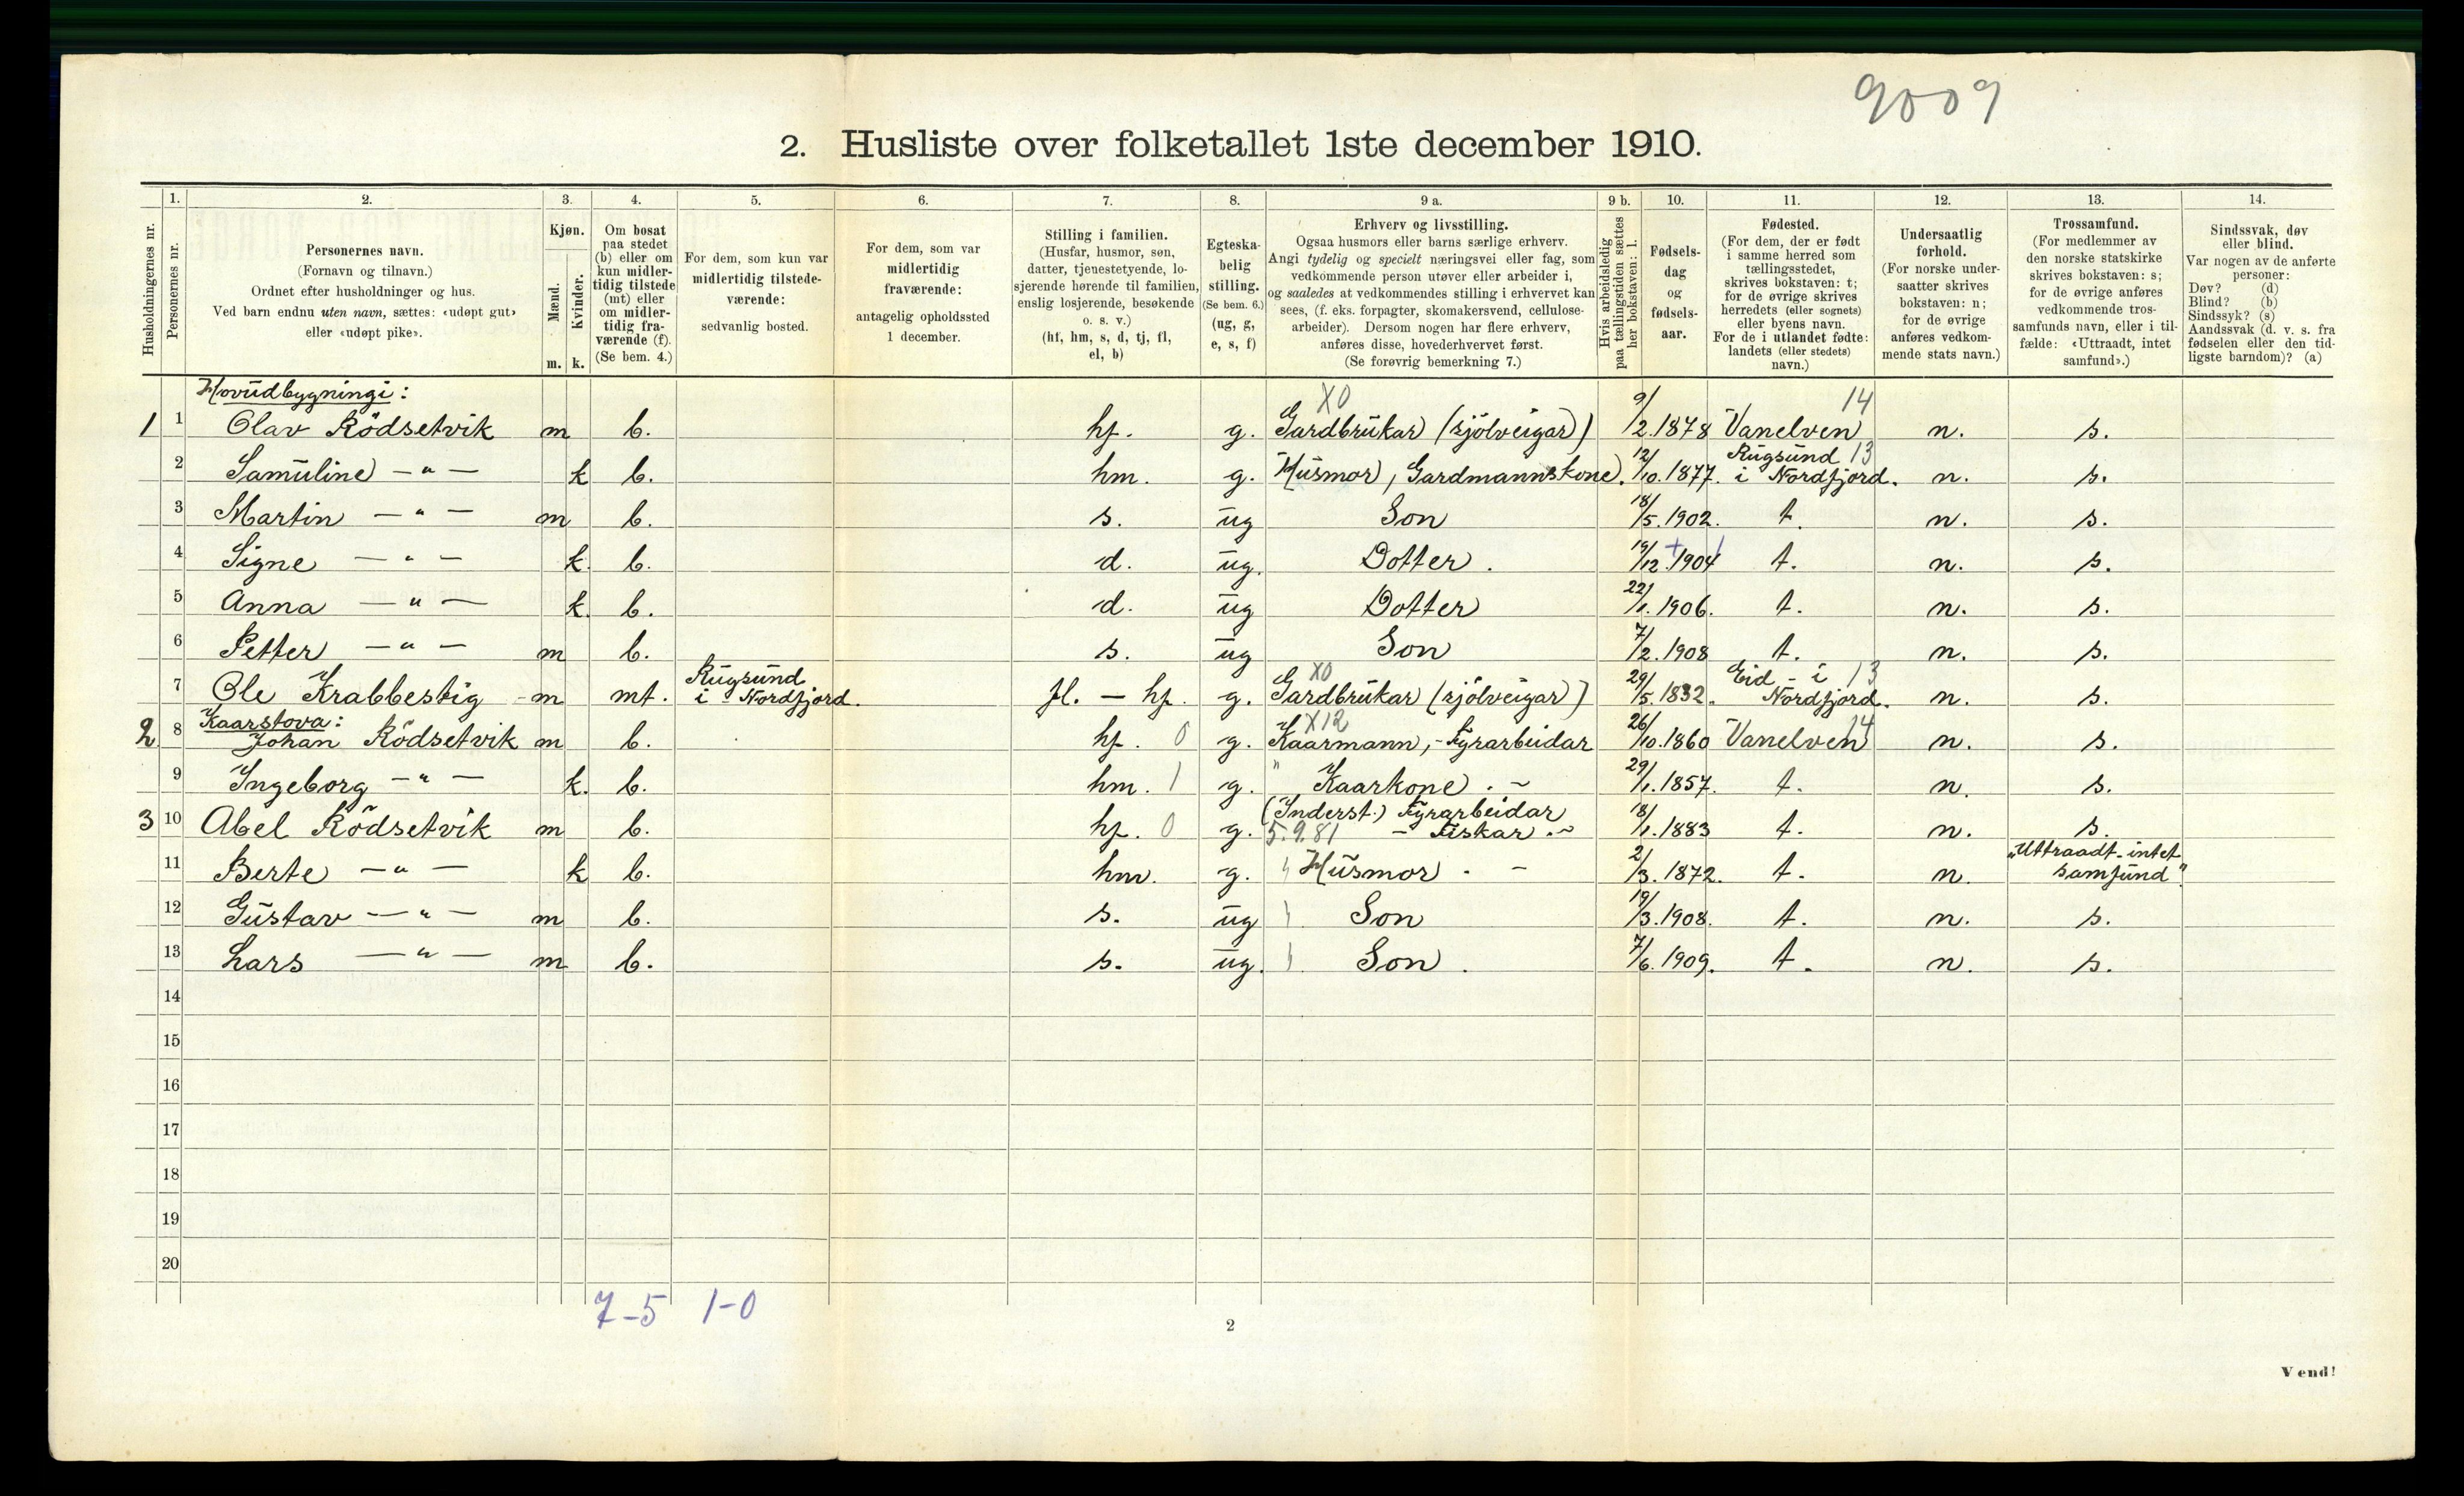 9009
2. Husliste over folketallet 1ste december 1910.
1. 2. 3. 4. 5. 6. 7. 8. 9 a. 9 b. 10. 11. 12. 13. 14.
Husholdningernes nr.
Personernes nr.
Personernes navn.
(Fornavn og tilnavn.)
Ordnet efter husholdninger og hus.
Ved barn endnu uten navn, sættes: «udøpt gut»
eller «udøpt pike».
Kjøn.
Mænd.
Kvinder.
m. k.
Om bosat
paa stedet
(b) eller om
kun midler-
tidig tilstede
(mt) eller
om midler-
tidig fra-
værende (f).
(Se bem. 4.)
For dem, som kun var
midlertidig tilstede-
værende:
sedvanlig bosted.
For dem, som var
midlertidig
fraværende:
antagelig opholdssted
1 december.
Stilling i familien.
(Husfar, husmor, søn,
datter, tjenestetyende, lo-
sjerende hørende til familien,
enslig losjerende, besøkende
o. s. v.)
(hf, hm, s, d, tj, fl,
el, b)
Egteska-
belig
stilling.
(Se bem. 6.)
(ug, g,
e, s, f)
Erhverv og livsstilling.
Ogsaa husmors eller barns særlige erhverv.
Angi tydelig og specielt næringsvei eller fag, som
vedkommende person utøver eller arbeider i,
og saaledes at vedkommendes stilling i erhvervet kan
sees, (f. eks. forpagter, skomakersvend, cellulose-
arbeider). Dersom nogen har flere erhverv,
anføres disse, hovederhvervet først.
(Se forøvrig bemerkning 7.)
Hvis arbeidsledig
paa tællingstiden sættes
her bokstaven: l.
Fødsels-
dag
og
fødsels-
aar.
Fødested.
(For dem, der er født
i samme herred som
tællingsstedet,
skrives bokstaven: t;
for de øvrige skrives
herredets (eller sognets)
eller byens navn.
For de i utlandet fødte:
landets (eller stedets)
navn.)
Undersaatlig
forhold.
(For norske under-
saatter skrives
bokstaven: n;
for de øvrige
anføres vedkom-
mende stats navn.)
Trossamfund.
(For medlemmer av
den norske statskirke
skrives bokstaven: s;
for de øvrige anføres
vedkommende tros-
samfunds navn, eller i til-
fælde: «Uttraadt, intet
samfund».)
Sindssvak, døv
eller blind.
Var nogen av de anførte
personer:
Døv? (d)
Blind? (b)
Sindssyk? (s)
Aandssvak (d. v. s. fra
fødselen eller den tid-
ligste barndom)? (a)
Hovudbygningi: X0 14
1 1 Olav Rödsetvik m b. hf. g. Gardbrukar (sjölveigar) 9/2.1878 Vanelven n. s.
2 Samuline — " — k b. hm. g. Husmor, Gardmannskone. 12/10.1877. Rugsund 13 i Nordfjord. n. s.
3 Martin — " — m b. s. ug Son 18/5.1902. t. n. s.
4 Signe — " — k. b. d. ug. Dotter. 19/12.1904 t. n. s.
5 Anna — " — k. b. d. ug Dotter 22/1.1906. t. n. s.
6 Petter — " — m b. s. ug Son 7/2.1908 t. n. s.
7 Ole Krabbestig - m mt. Rugsund i Nordfjord. fl. — hf. g. X0 Gardbrukar (sjölveigar) 29/5.1832. Eid - i 13 Nordfjord. n. s.
Kaarstova:
2 8 Johan Rödsetvik m b. hf. 0 g. X12 Kaarmann, - Fyrarbeidar 26/10.1860 Vanelven 14 n. s.
9 Ingeborg — " — k. b. hm. 1 g. " Kaarkone. - 29/1.1857. t. n. s.
3 10 Abel Rödsetvik m b. hf. 0 g. (Inderst.) Fyrarbeidar 5.9.81 - Fiskar. - 18/1.1883 t. n. s.
11 Berte — " — k b. hm. g. Husmor. - 2/3.1872. t. n. "Uttraadt-intet samfund".
12 Gustav — " — m b. s. ug Son 19/3.1908. t. n. s.
13 Lars — " — m b. s. ug. Son. 7/6.1909. t. n. s.
14
15
16
17
18
19
20
7-5 1-0
2
Vend!